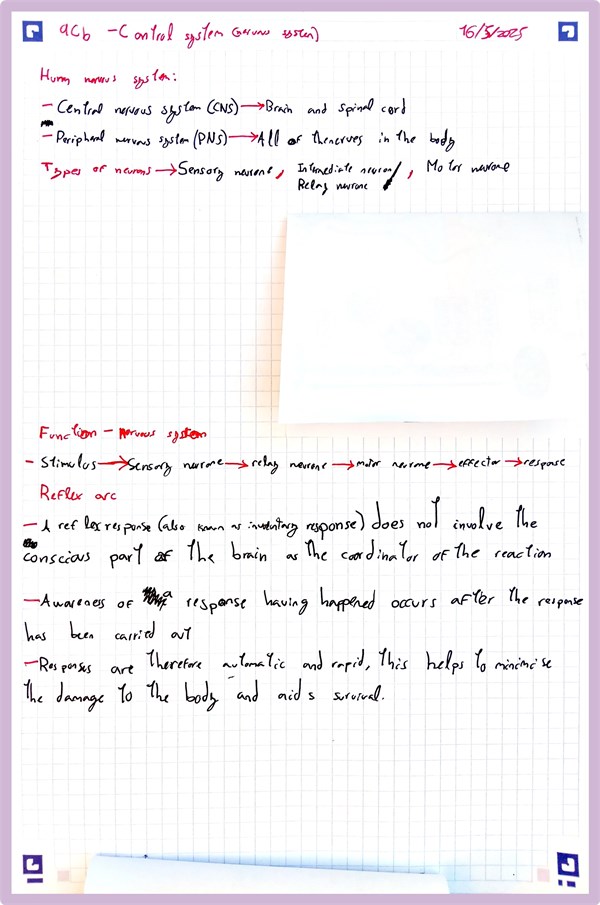 9Cb - Control system (nervous system) 16/5/2025
Human nervous system:
- Central nervous system (CNS) → Brain and spinal cord
- Peripheral nervous system (PNS) → All of the nerves in the body
Types of neurons → Sensory neurone, Intermediate neuron / Relay neurone, Motor neurone
Function - Nervous system
- Stimulus → Sensory neurone → relay neurone → motor neurone → effector → response
Reflex arc
- A reflex response (also known as involuntary response) does not involve the
conscious part of the brain as the coordinator of the reaction
- Awareness of a response having happened occurs after the response
has been carried out
- Responses are therefore automatic and rapid, this helps to minimise
the damage to the body and aids survival.